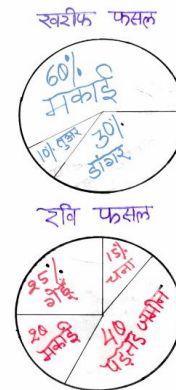 खरीफ फसल
60%
मकाई
10% तुअर
30%
डांगर
रवि फसल
15%
चना
25%
गेहूँ
20
मकाई
40
पड़तड जमीन